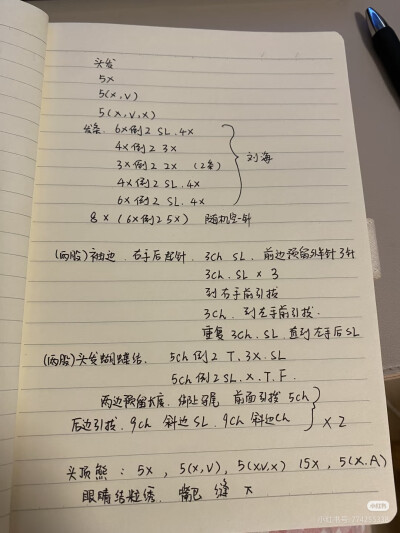 头发
5x
5(x,v)
5(x,v,x)
发条. 6x倒2 SL.4x
4x倒2 3x
3x倒2 2x (2条)
4x倒2 SL.4x
6x倒2 SL.4x
刘海
8x (6x倒2 5x) 随机空一针
(两股)袖边. 右手后起针. 3ch SL. 前边预留外半针3针
3ch. SL x 3
到右手前引拔
3ch. 到左手前引拔.
重复3ch.SL.直到左手后SL
(两股)头发蝴蝶结. 5ch倒2 T.3x.SL
5ch倒2SL.x.T.F.
两边预留长度. 绑上马尾 前面引拔5ch
后边引拔. 9ch 斜边SL. 9ch斜边ch
x 2
头顶熊: 5x, 5(x,v), 5(x,v,x) 15x, 5(x.A)
眼睛结粒绣. 嘴巴 缝 x
小红书